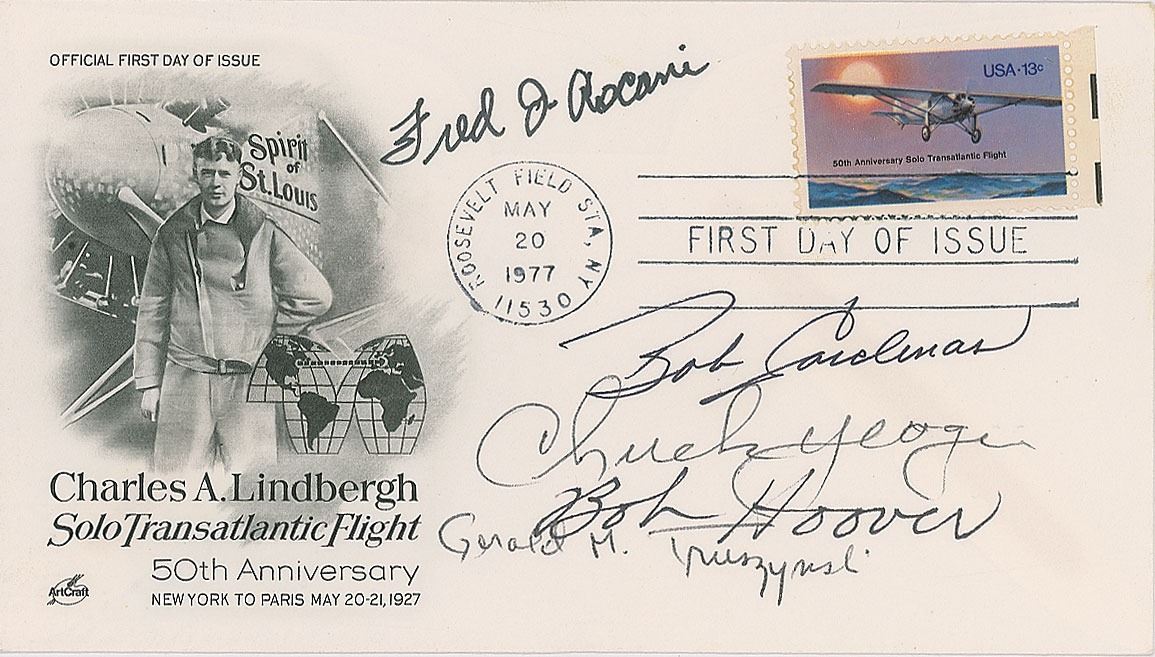 OFFICIAL FIRST DAY OF ISSUE
Spirit
of
St. Louis
Fred J Ascani
USA·13c
50th Anniversary Solo Transatlantic Flight
ROOSEVELT FIELD STA, NY
MAY
20
1977
11530
FIRST DAY OF ISSUE
Bob Cardenas
Chuck Yeager
Bob Hoover
Gerald M. Truszynski
Charles A. Lindbergh
Solo Transatlantic Flight
50th Anniversary
NEW YORK TO PARIS MAY 20-21, 1927
ArtCraft